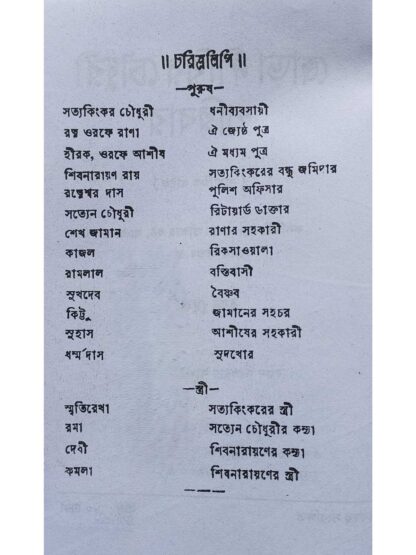 ॥ চরিত্রলিপি ॥
—পুরুষ—
সত্যকিংকর চৌধুরী ধনীব্যবসায়ী
রত্ন ওরফে রাণা ঐ জ্যেষ্ঠ পুত্র
হীরক, ওরফে আশীষ ঐ মধ্যম পুত্র
শিবনারায়ণ রায় সত্যকিংকরের বন্ধু জমিদার
রত্নেশ্বর দাস পুলিশ অফিসার
সত্যেন চৌধুরী রিটায়ার্ড ডাক্তার
শেখ জামান রাণার সহকারী
কাজল রিকসাওয়ালা
রামলাল বস্তিবাসী
সুখদেব বৈষ্ণব
কিট্টু জামানের সহচর
সুহাস আশীষের সহকারী
ধর্ম্মদাস সুদখোর
—স্ত্রী—
স্মৃতিরেখা সত্যকিংকরের স্ত্রী
রমা সত্যেন চৌধুরীর কন্যা
দেবী শিবনারায়ণের কন্যা
কমলা শিবনারায়ণের স্ত্রী